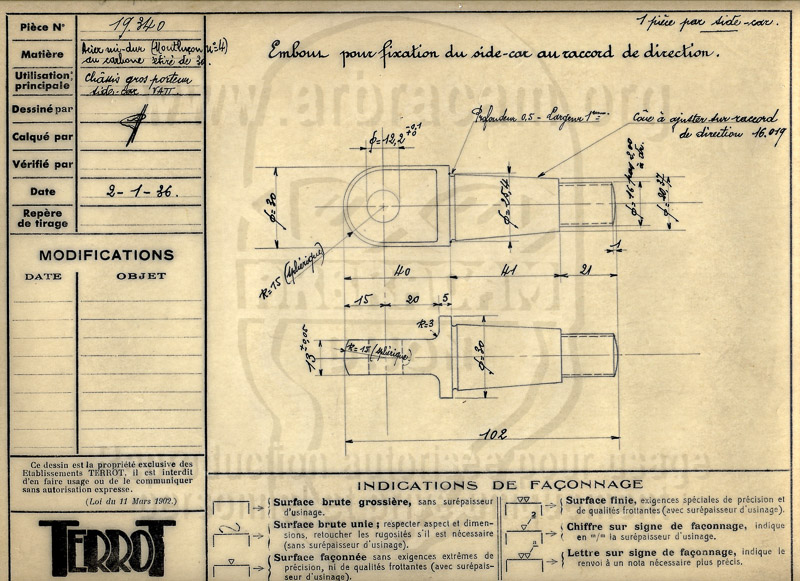 Pièce N° 19.340
Matière Acier mi-dur (Montluçon n°4)
au carbone étiré de 30.
Utilisation principale Châssis gros porteur
side-car VATT.
Dessiné par
Calqué par
Vérifié par
Date 2-1-36.
Repère de tirage
MODIFICATIONS
DATE OBJET
Ce dessin est la propriété exclusive des
Etablissements TERROT, il est interdit
d'en faire usage ou de le communiquer
sans autorisation expresse.
(Loi du 11 Mars 1902.)
TERROT
1 pièce par side-car.
Embout pour fixation du side-car au raccord de direction.
Profondeur 0,5 - Largeur 1
Cône à ajuster sur raccord
de direction 16.019
φ=12,2 -0,1 +0
φ=30
φ=25,4
φ=16 pas 2,00 à dr.
R=15 (sphérique)
1
40 41 21
15 20 5
R=3
13 ±0,05
R=15 (sphérique)
φ=30
102
INDICATIONS DE FAÇONNAGE
Surface brute grossière, sans surépaisseur
d'usinage.
Surface brute unie; respecter aspect et dimen-
sions, retoucher les rugosités s'il est nécessaire
(sans surépaisseur d'usinage).
Surface façonnée sans exigences extrêmes de
précision, ni de qualités frottantes (avec surépais-
seur d'usinage).
Surface finie, exigences spéciales de précision et
de qualités frottantes (avec surépaisseur d'usinage).
Chiffre sur signe de façonnage, indique
en m/m la surépaisseur d'usinage.
Lettre sur signe de façonnage, indique le
renvoi à un nota nécessaire plus précis.